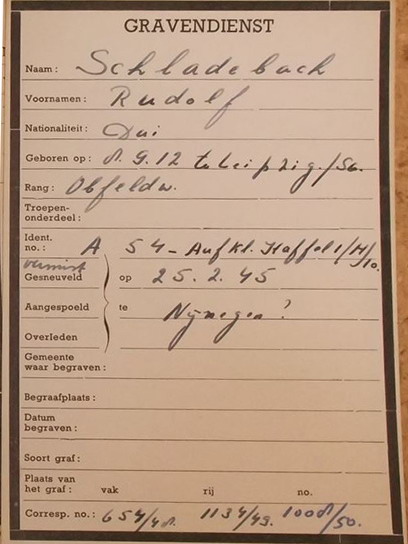 GRAVENDIENST
Naam: Schladebach
Voornamen: Rudolf
Nationaliteit: Dui
Geboren op: 8.9.12 te Leipzig/Sa.
Rang: Obfeldw.
Troepen-
onderdeel:
Ident.
no.: A 54 - Aufkl. Staffel 1/(H)/10.
vermist
Gesneuveld op 25.2.45
Aangespoeld te Nijmegen?
Overleden
Gemeente
waar begraven:
Begraafplaats:
Datum
begraven:
Soort graf:
Plaats van
het graf: vak rij no.
Corresp. no.: 654/48. 1134/49. 1008/50.